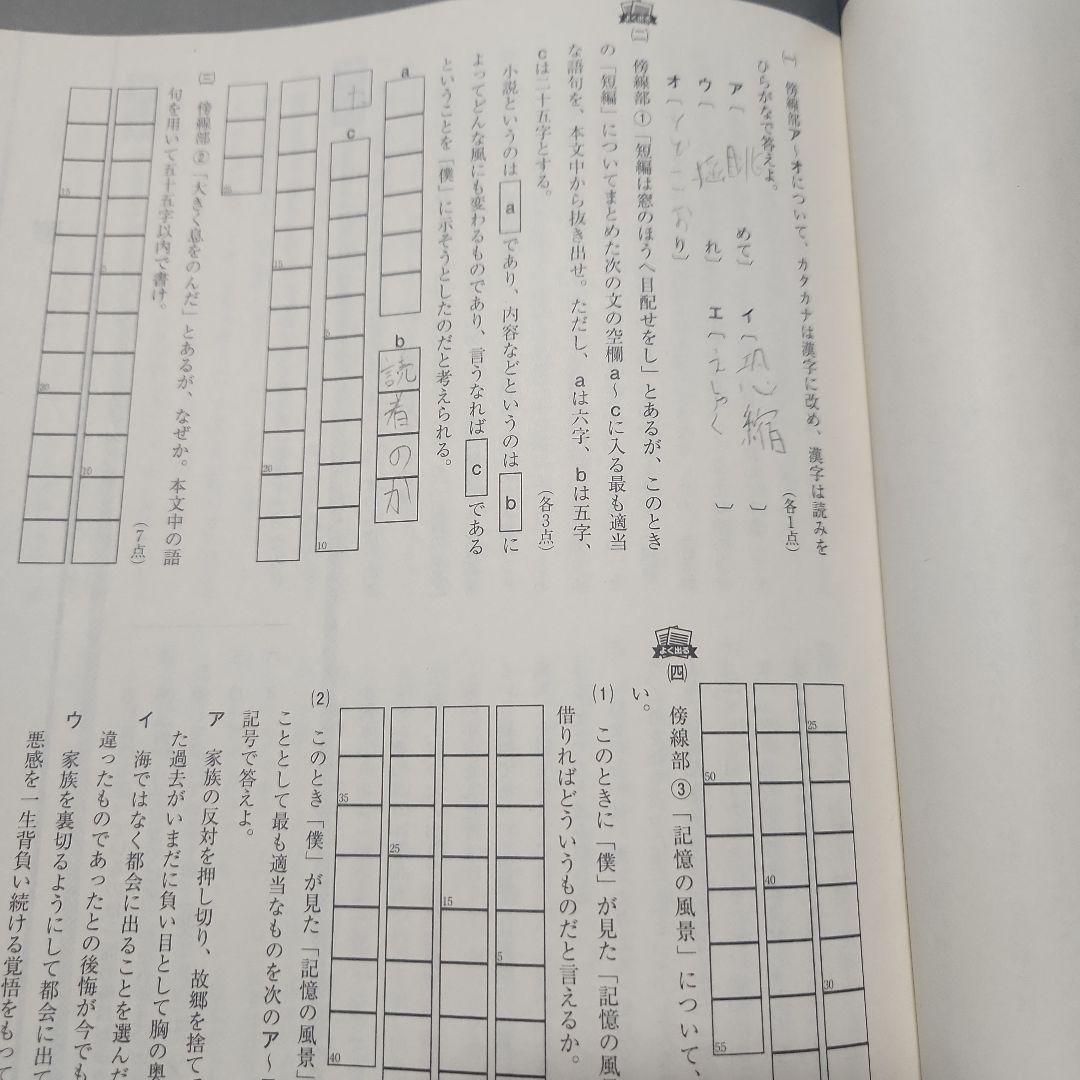 よく出る
㈠ 傍線部ア～オについて、カタカナは漢字に改め、漢字は読みを
ひらがなで答えよ。
(各1点)
ア〔 眺 めて〕 イ〔 恐縮 〕
ウ〔 れ〕 エ〔 えしゃく 〕
オ〔 とどこおり〕
㈡ 傍線部①「短編は窓のほうへ目配せをし」とあるが、このとき
の「短編」についてまとめた次の文の空欄a～cに入る最も適当
な語句を、本文中から抜き出せ。ただし、aは六字、bは五字、
cは二十五字とする。
(各3点)
小説というのは a であり、内容などというのは b に
よってどんな風にも変わるものであり、言うなれば c である
ということを「僕」に示そうとしたのだと考えられる。
a
b
読者のか
c
5
10
15
20
25
㈢ 傍線部②「大きく息をのんだ」とあるが、なぜか。本文中の語
句を用いて五十五字以内で書け。
(7点)
5
10
15
20
25
30
40
50
55
よく出る
㈣ 傍線部③「記憶の風景」について、
い。
⑴ このときに「僕」が見た「記憶の風
借りればどういうものだと言えるか。
5
15
25
35
40
⑵ このとき「僕」が見た「記憶の風景」
こととして最も適当なものを次のア～
記号で答えよ。
ア 家族の反対を押し切り、故郷を捨て
た過去がいまだに負い目として胸の奥
イ 海ではなく都会に出ることを選んだ
違ったものであったとの後悔が今でも
ウ 家族を裏切るようにして都会に出て
悪感を一生背負い続ける覚悟をもって